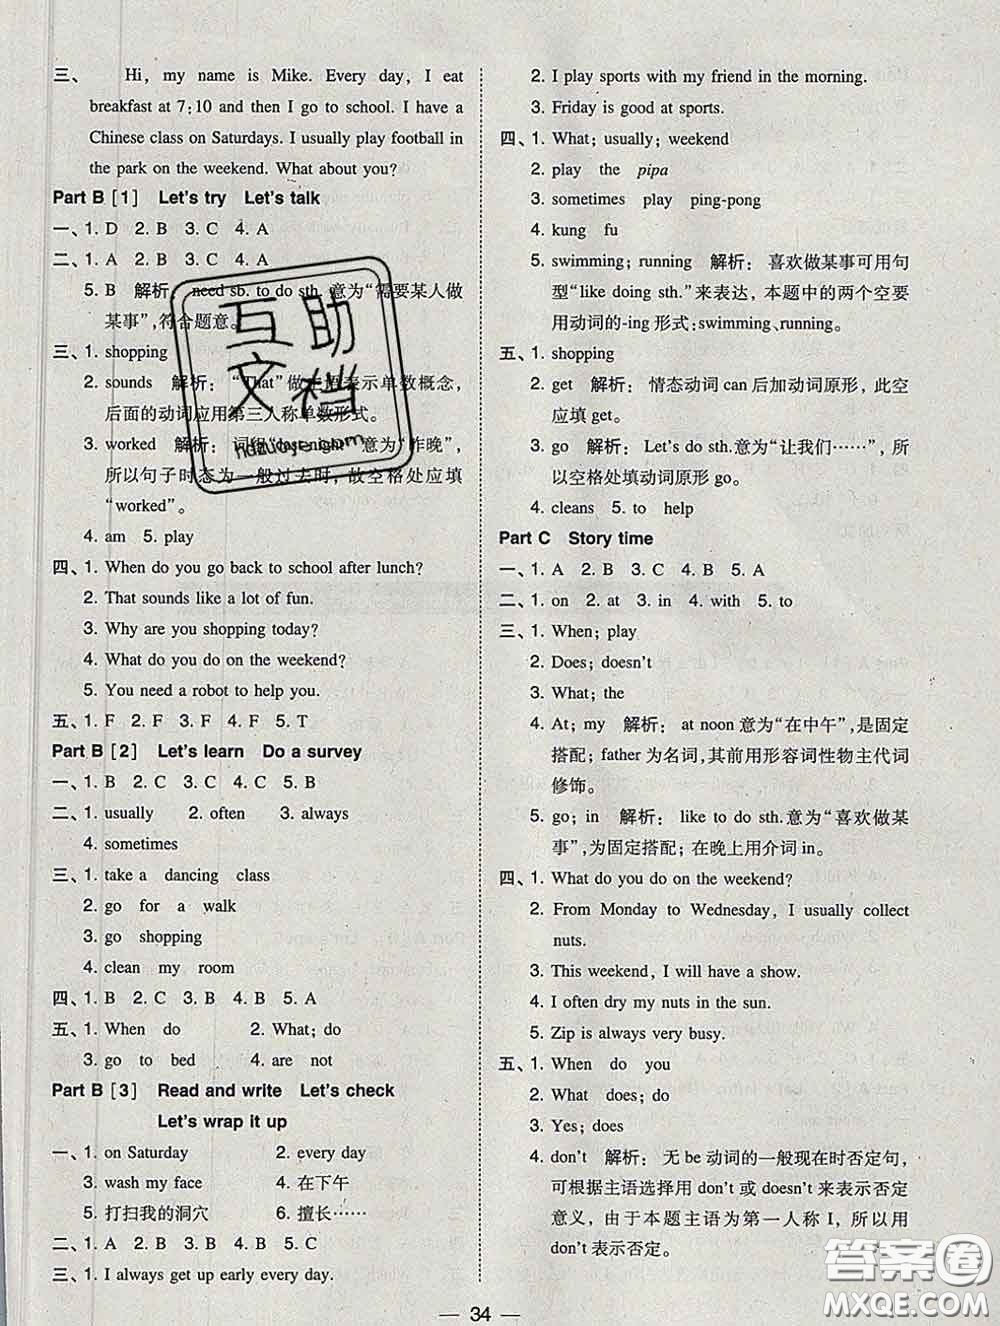 三、 Hi, my name is Mike. Every day, I eat
breakfast at 7:10 and then I go to school. I have a
Chinese class on Saturdays. I usually play football in
the park on the weekend. What about you?
Part B [1] Let's try Let's talk
一、1. D 2. B 3. C 4. A
二、1. A 2. B 3. C 4. A
5. B 解析： need sb. to do sth. 意为“需要某人做
某事”,符合题意。
三、1. shopping
2. sounds 解析： “That”做主语表示单数概念，
后面的动词应用第三人称单数形式。
3. worked 解析： 词组“last night”意为“昨晚”，
所以句子时态为一般过去时，故空格处应填
“worked”。
4. am 5. play
四、1. When do you go back to school after lunch?
2. That sounds like a lot of fun.
3. Why are you shopping today?
4. What do you do on the weekend?
5. You need a robot to help you.
五、1. F 2. F 3. F 4. F 5. T
Part B [2] Let's learn Do a survey
一、1. B 2. C 3. C 4. C 5. B
二、1. usually 2. often 3. always
4. sometimes
三、1. take a dancing class
2. go for a walk
3. go shopping
4. clean my room
四、1. B 2. C 3. B 4. B 5. A
五、1. When do 2. What; do
3. go to bed 4. are not
Part B [3] Read and write Let's check
Let's wrap it up
一、1. on Saturday 2. every day
3. wash my face 4. 在下午
5. 打扫我的洞穴 6. 擅长……
二、1. A 2. B 3. B 4. B 5. C
三、1. I always get up early every day.
2. I play sports with my friend in the morning.
3. Friday is good at sports.
四、1. What; usually; weekend
2. play the pipa
3. sometimes play ping-pong
4. kung fu
5. swimming; running 解析： 喜欢做某事可用句
型“like doing sth.”来表达，本题中的两个空要
用动词的-ing 形式:swimming、running。
五、1. shopping
2. get 解析： 情态动词 can 后加动词原形，此空
应填 get。
3. go 解析： Let's do sth.意为“让我们……”，所
以空格处填动词原形 go。
4. cleans 5. to help
Part C Story time
一、1. A 2. B 3. C 4. B 5. A
二、1. on 2. at 3. in 4. with 5. to
三、1. When; play
2. Does; doesn't
3. What; the
4. At; my 解析： at noon 意为“在中午”,是固定
搭配；father 为名词，其前用形容词性物主代词
修饰。
5. go; in 解析： like to do sth.意为“喜欢做某
事”,为固定搭配；在晚上用介词 in。
四、1. What do you do on the weekend?
2. From Monday to Wednesday, I usually collect
nuts.
3. This weekend, I will have a show.
4. I often dry my nuts in the sun.
5. Zip is always very busy.
五、1. When do you
2. What does; do
3. Yes; does
4. don't 解析： 无 be 动词的一般现在时否定句，
可根据主语选择用 don't 或 doesn't 来表示否定
意义，由于本题主语为第一人称 I，所以用
don't 表示否定。
— 34 —
互助
文档
答案圈
MXQE.COM